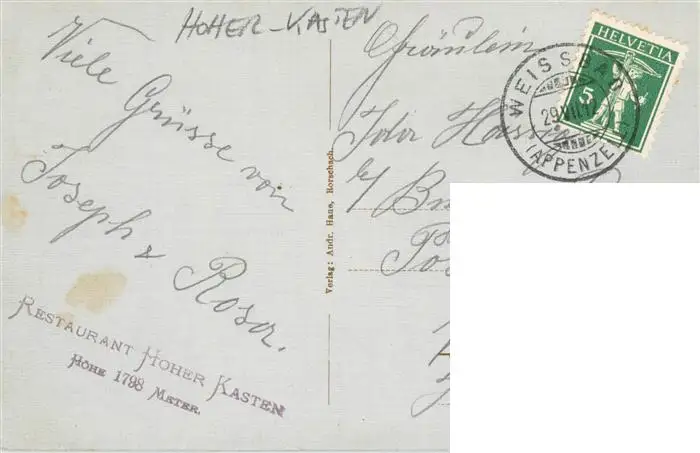 HOHER-KASTEN
Viele Grüsse von
Joseph & Rosa.
RESTAURANT HOHER KASTEN
HÖHE 1798 METER.
Verlag: Andr. Hane, Rorschach
Fräulein
HELVETIA
5
WEISSBAD
29.VII.12
(APPENZE